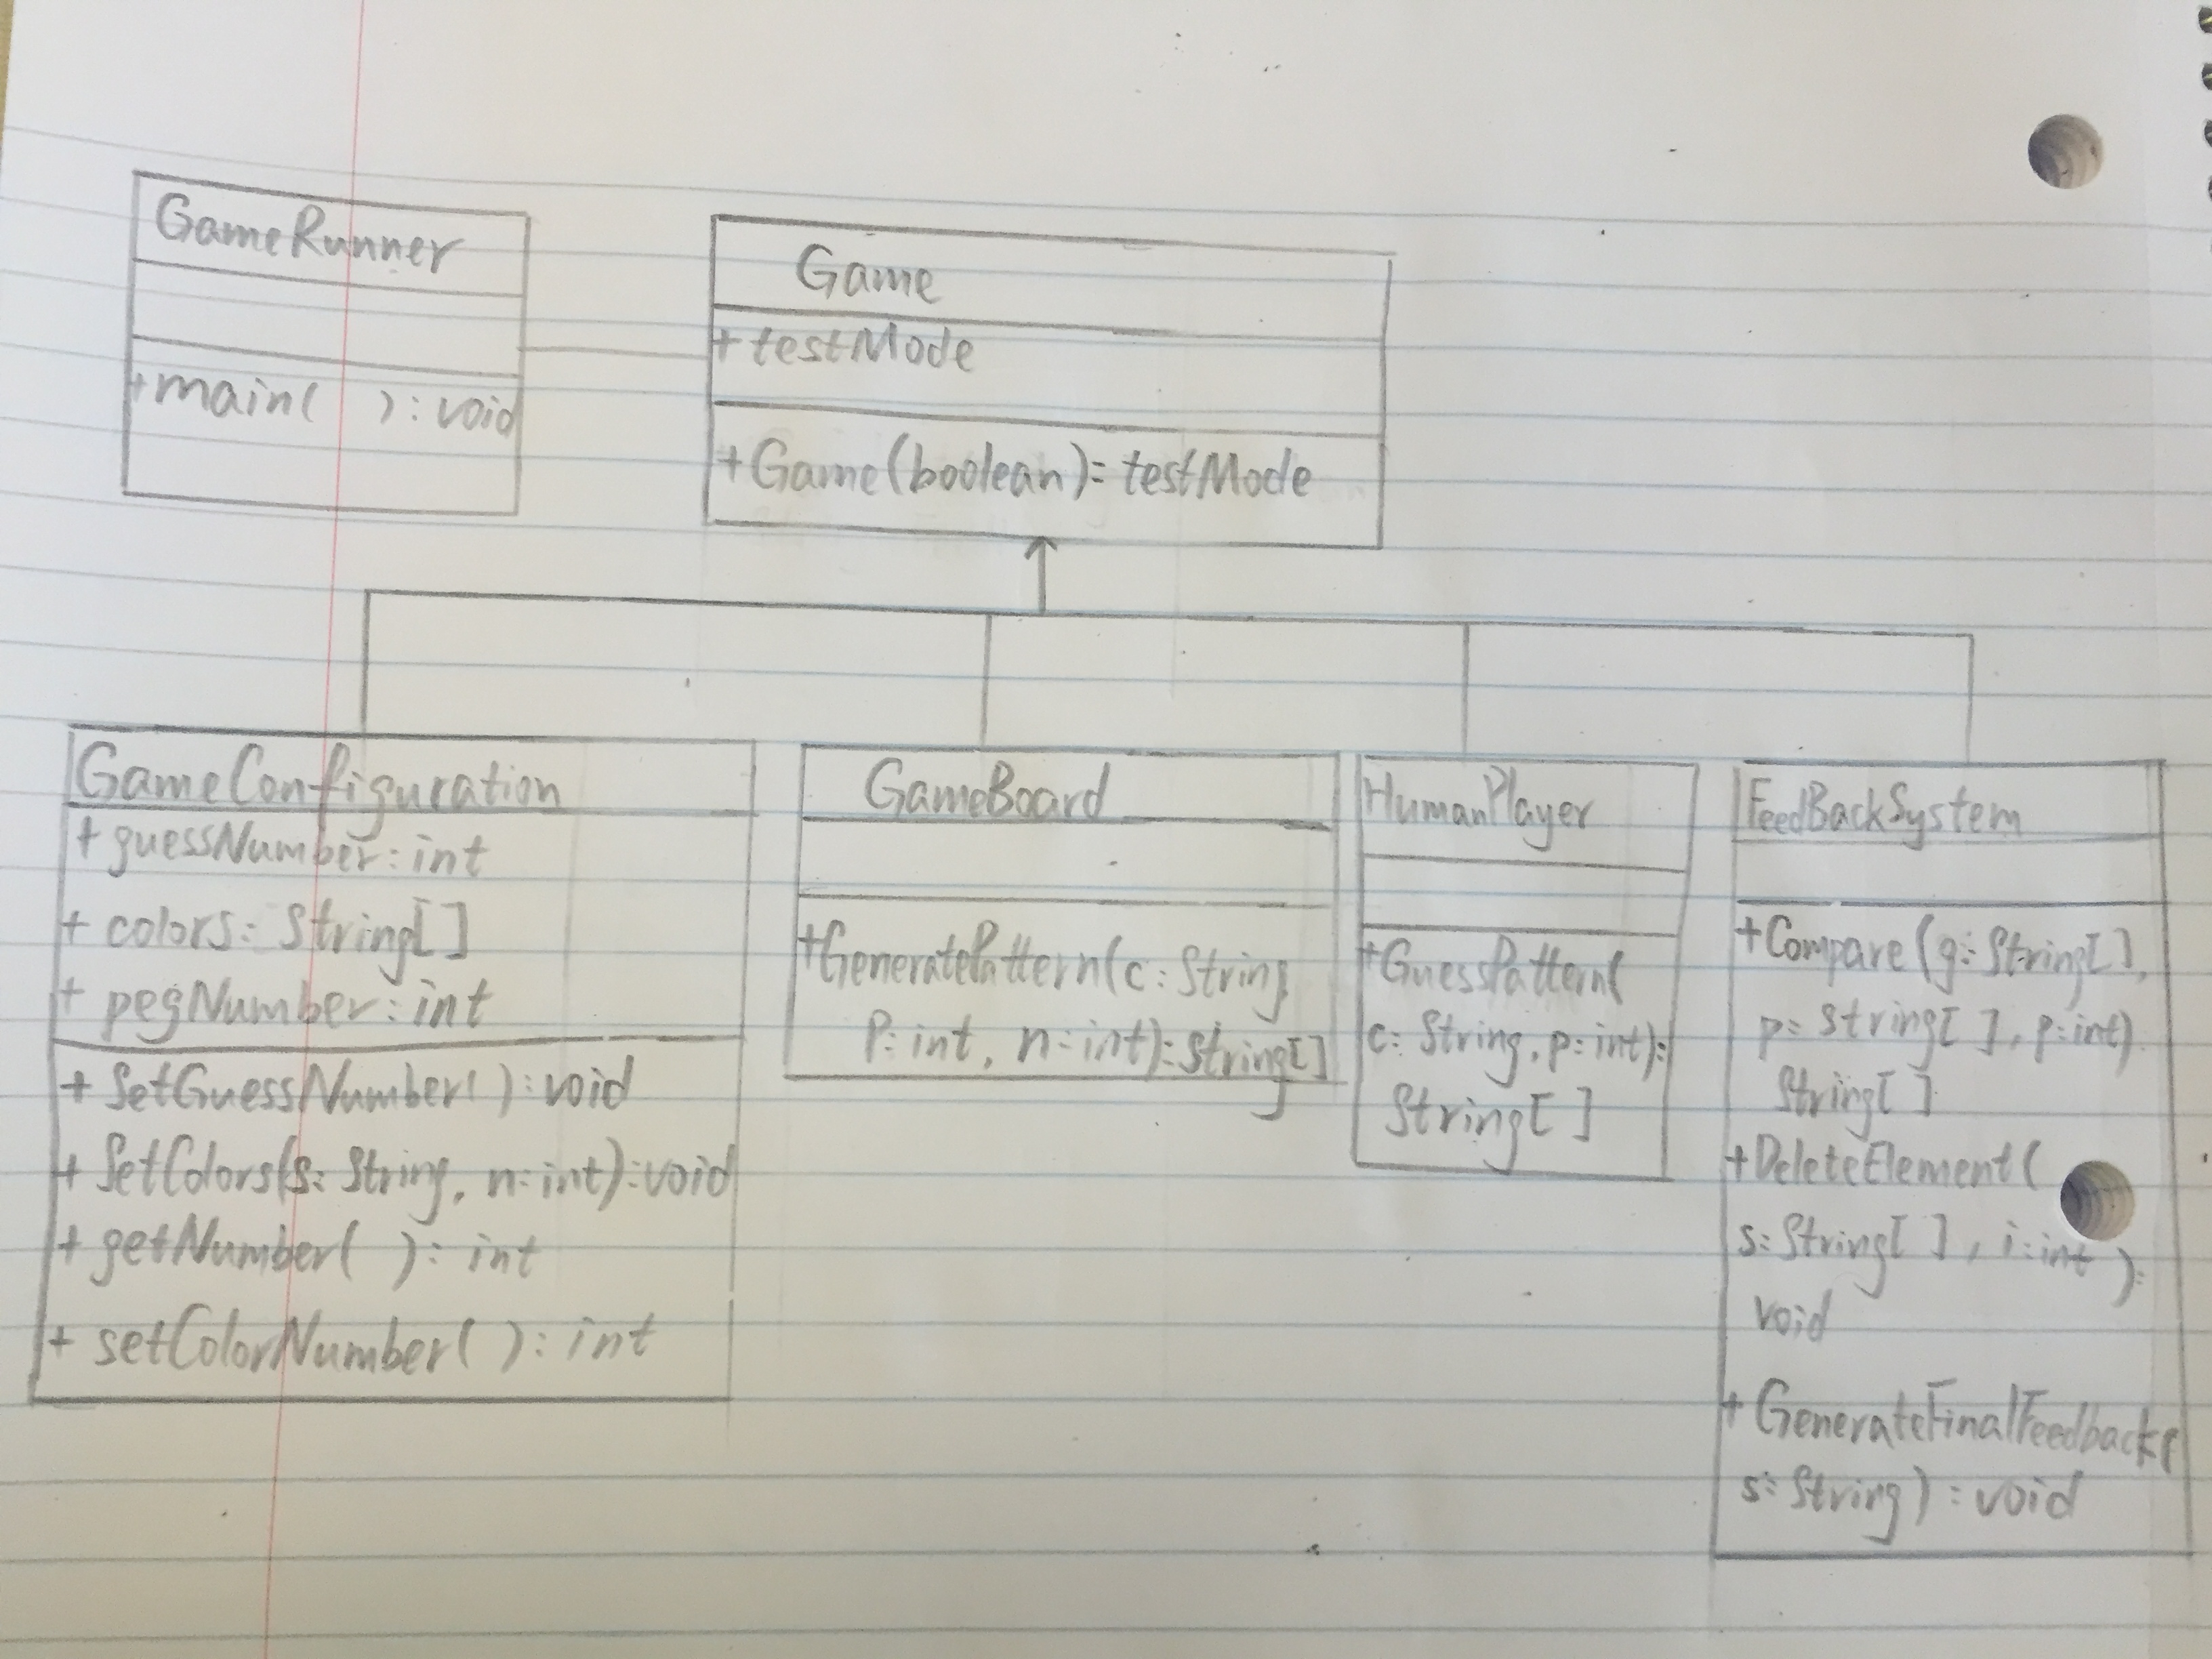 GameRunner
+main( ): void
Game
+testMode
+Game(boolean)=testMode
GameConfiguration
+guessNumber: int
+colors: String[]
+pegNumber: int
+SetGuessNumber( ): void
+SetColors(s: String, n: int): void
+getNumber( ): int
+setColorNumber( ): int
GameBoard
+GeneratePattern(c: String,
P: int, n: int): String[]
HumanPlayer
+GuessPattern(
c: String, p: int):
String[]
FeedBackSystem
+Compare(g: String[],
p: String[], p: int)
String[]
+DeleteElement(
s: String[], i: int):
void
+GenerateFinalFeedback(
s: String): void